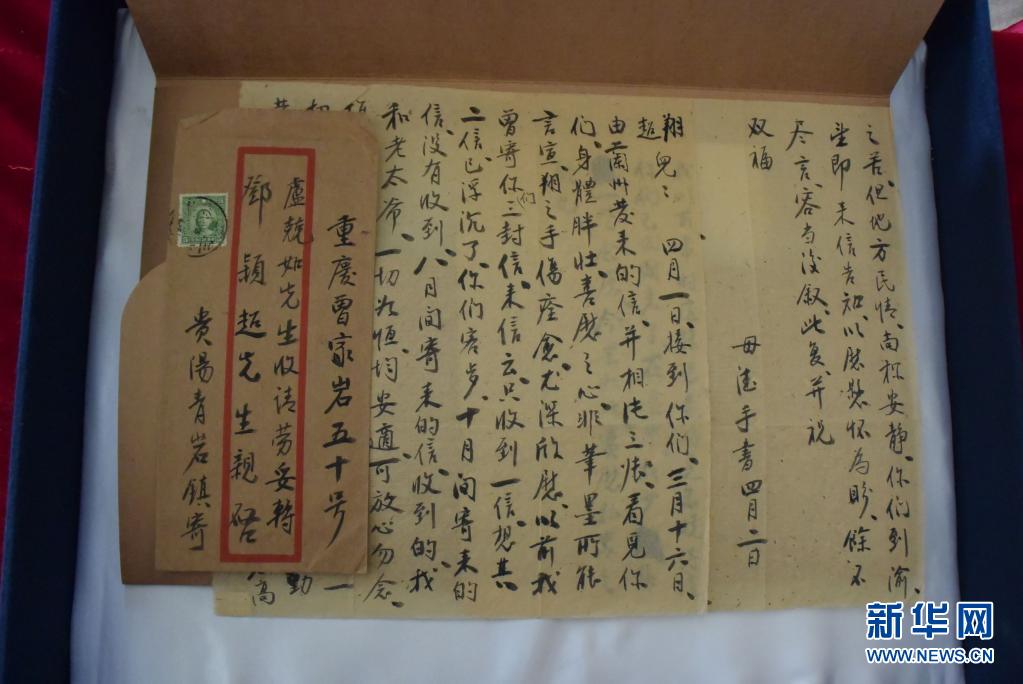 之苦、但地方民情、尚称安静、你们到渝、
望即来信告知、以慰愁怀为盼、馀不
尽言、容当後叙、此复、并祝
双福
母德手書 四月二日
翔超兒： 四月一日、接到你们、三月十六日、
由蘭州发来的信、并相片三张、看见你
们、身體胖壮、喜慰之心、非筆墨所能
言宣、翔之手傷痊愈、尤深欣慰、以前我
曾寄你们三封信、来信云、只收到一信、想其
二信、已浮沉了、你们客岁、十月间寄来的
信、没有收到、八月间寄来的信、收到的、我
和老太爷、一切如恒、均安適、可放心勿念、
重慶曾家岩五十号
盧競如先生收请劳妥轉
鄧穎超先生親啓
貴陽青岩鎮寄
新华网
WWW.NEWS.CN